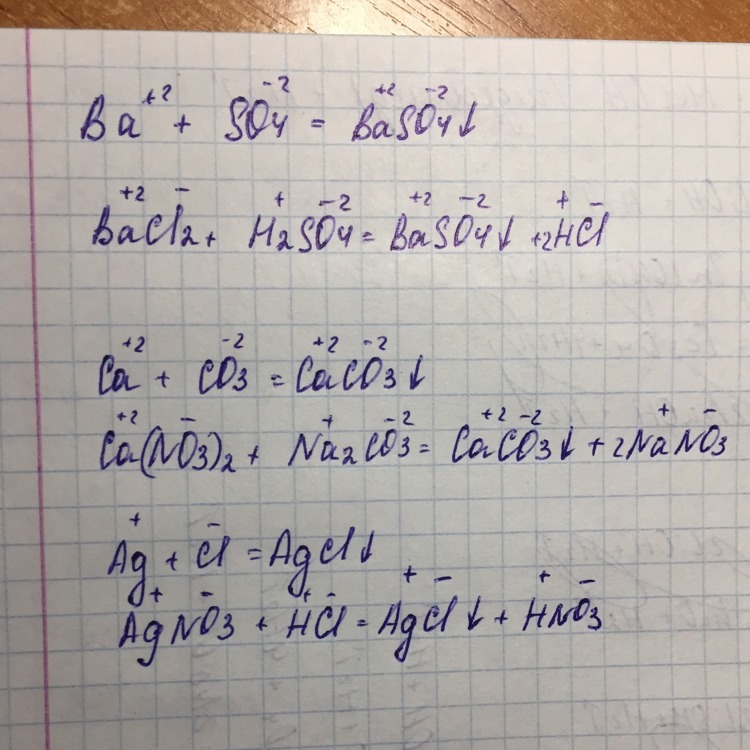 Ba⁺² + SO₄⁻² = Ba⁺²SO₄⁻²↓
Ba⁺²Cl⁻₂ + H⁺₂SO₄⁻² = Ba⁺²SO₄⁻²↓ + 2H⁺Cl⁻
Ca⁺² + CO₃⁻² = Ca⁺²CO₃⁻²↓
Ca⁺²(NO₃⁻)₂ + Na⁺₂CO₃⁻² = Ca⁺²CO₃⁻²↓ + 2Na⁺NO₃⁻
Ag⁺ + Cl⁻ = AgCl↓
Ag⁺NO₃⁻ + H⁺Cl⁻ = Ag⁺Cl⁻↓ + H⁺NO₃⁻